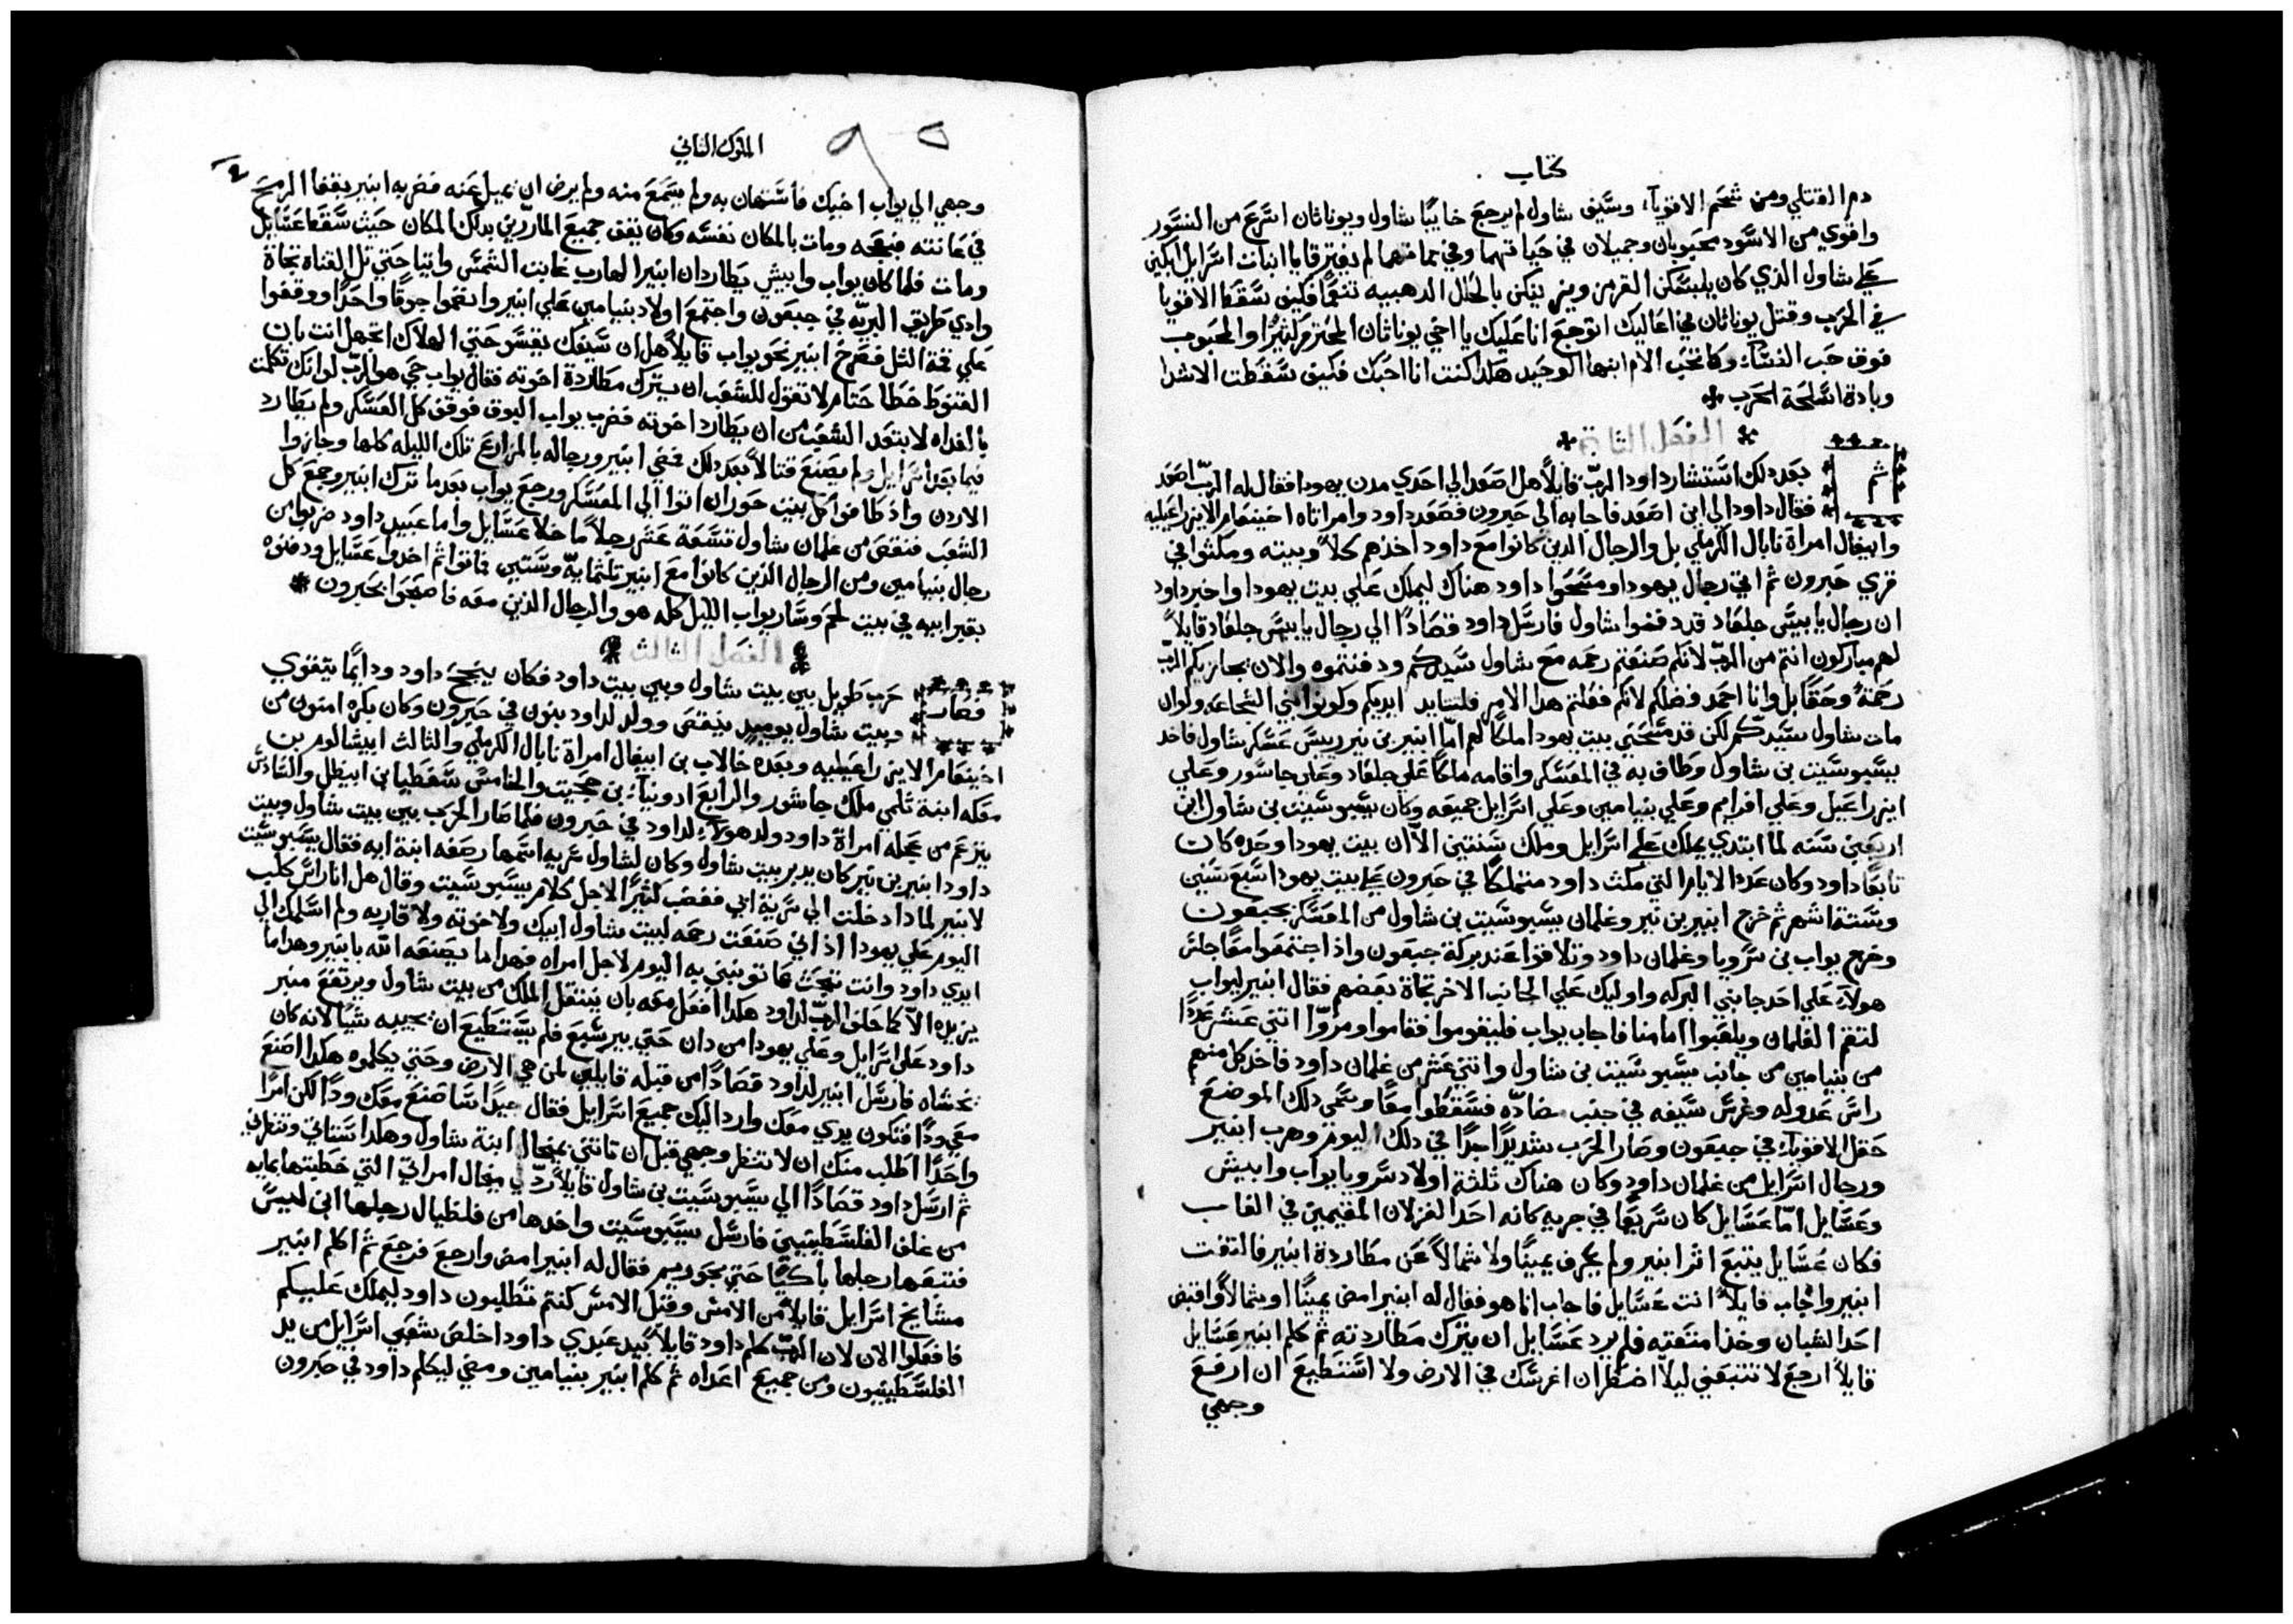 كتاب
دم القتلي ومن شحم الاقويآء وسَّيف شاول لم يرجع خايبًا شاول ويوناثان اسَّرع من النسَّور
واقوي من الاسَّود محبوبان وجميلان في حَياتهما وفي مماتهما لم يفترقا يا بنات اسَّرايل ابكين
عَلي شاول الذي كان يلبسَّكن القرمز ويزينكن بالحُلل الدهبيه تنعمًا فكيف سَّقطا الاقويا
في الحَرب وقتل يوناثان في اعَاليك اتوجع انا عَليك يا اخي يوناثان المحُترم كثيرًا والمحَبوب
فوق حَب النسَّآء وكما تحَب الام ابنها الوحَيد هكدا كنت انا احَبك فكيف سَّقطت الاشدا
وبادة اسَّلحَة الحَرب
الفصَل الثاني
ثم بعَد دلك اسَّتشار داود الربّ قايلاً هل اصَعد الي احَدي مدن يهودا فقال له الربّ اصَعد
فقال داود الي اين اصَعد فاجابه الي حَبرون فصَعد داود وامراتاه اخينعَام الايزراعَيليه
وابيغال امراة نابال الكرملي بل والرجال الذين كانوا مع داود اخذهم كلاً وبيته ومكثوا في
قري حَبرون ثم اتي رجال يهودا ومسَّحَوا داود هناك ليملك عَلي بيت يهودا واخبر داود
ان رجال يابيسَّ جلعَاد قد دفنوا شاول فارسَّل داود قصَادًا الي رجال يابيسَّ جلعَاد قايلاً
لهم مباركون انتم من الربّ لانكم صَنعَتم رحمَه مع شاول سَّيدكم ودفنتموه والان يجازيكم الربّ
رحَمةً وحَقًا بل وانا احَمد فضلكم لانكم فعَلتم هدا الامر فلتتايد ايديكم وكونوا بني الشجاعَه ولوان
مات شاول سَّيدّكم لكن قد مسَّحَني بيت يهودا ملكًا لهم امّا ابنير بن نير رييسَّ عَسَّكر شاول فاخد
يسَّبوسَّيت بن شاول وطاف به في المعَسَّكر واقامه ملكًا عَلي جلعَاد وعَلي جاسَّور وعَلي
ايزراعَيل وعَلي افرايم وعَلي بنيامين وعَلي اسَّرايل جميعَه وكان يسَّبوسَّيت بن شاول ابن
اربعَين سَّنه لما ابتدي يملك عَلي اسَّرايل وملك سَّنتين الاّ ان بيت يهودا وحَده كان
تابعًا داود وكان عَدد الايام التي مكث داود متملكًا في حَبرون عَلي بيت يهودا سَّبع سَّنين
وسَّتة اشهر ثم خرج ابنير بن نير وغلمان يسَّبوسَّيت بن شاول من المعَسَّكر بجبعَون
وخرج يواب بن سَّرويا وغلمان داود وتلاقوا عَند بركة جبعَون واذ اجتمعَوا معًا جلسَّ
هولآء عَلي احَد جانبي البركه واوليك عَلي الجانب الاخر تجاة بعَضهم فقال ابنير ليواب
لتقم الغلمان ويلعَبوا امامنا فاجاب يواب فليقوموا فقاموا ومروّا اتني عَشر عَددًا
من بنيامين من جانب يسَّبوسَّيت بن شاول واتني عَشر من غلمان داود فاخد كل منهم
راسَّ عَدوله وغرسَّ سَّيفه في جنب مضادّه فسَّقطوا معًا وسَّمي دلك الموضع
حَقل الاقويآء في جبعَون وصَار الحَرب شديدًا جدًا في دلك اليوم وهرب ابنير
ورجال اسَّرايل من غلمان داود وكان هناك ثلثة اولاد سَّرويا يواب وابيش
وعَسَّايل امّا عَسَّايل كان سَّريعًا في جريه كانه احَد الغزلان المقيمين في الغاب
فكان عَسَّايل يتبع اثر ابنير ولم يحَرف يمينًا ولا شمالاً عَن مطاردة ابنير فالتفت
ابنير واجاب قايلاً انت عَسَّايل فاجاب انا هو فقال له ابنير امض يمينًا او شمالاً واقبض
احَد الشبان وخذ امتعَته فلم يرد عَسَّايل ان يترك مطاردته ثم كلم ابنير عَسَّايل
قايلاً ارجع لا تتبعَني ليلاّ اضطر ان اغرسَّك في الارض ولا اسَّتطيع ان ارفع
وجهي
الملوك الثاني
وجهي الي يواب اخيك فاسَّتهان به ولم يسَّمع منه ولم يرض ان يميل عَنه فضربه ابنير بقفا الرمح
في عَانته فبعَجه ومات بالمكان نفسَّه وكان يقف جميع المارّين بدلك المكان حَيث سَّقط عَسَّايل
ومات فلما كان يواب وابيشي يطاردان ابنير الهارب غابت الشمسَّ واتيا حَتي تل القناة تجاة
وادي طريق البريّه في جبعَون واجتمع اولاد بنيامين عَلي ابنير وانضموا جوقًا واحَدًا ووقفوا
عَلي قمة التل فصَرخ ابنير نحَو يواب قايلاً هل ان سَّيفك يقسَّو حَتي الهلاك اتجهل انت بان
القنوط خطا حَتام لا تقول للشعَب ان يترك مطاردة اخوته فقال يواب حَي هو الربّ لو انك تكلمت
بالغداه لابتعَد الشعَب من ان يطارد اخوته فضرب يواب البوق فوقف كل العَسَّكر ولم يطارد
فيما بعَد اسَّرايل ولم يصَنع قتالاً بعَد دلك فمضي ابنير ورجاله بالمزارع تلك الليله كلها وجازوا
الاردن واذ طافوا كل بيت حَوران اتوا الي المعَسَّكر ورجع يواب بعَدما ترك ابنير وجمع كل
الشعَب فنقصَ من غلمان شاول تسَّعَة عَشر رجلاً ما خلا عَسَّايل واما عَبيد داود ضربوا من
رجال بنيامين ومن الرجال الذين كانوا مع ابنير تلثمايةّ وسَّتين فماتوا ثم اخدوا عَسَّايل ودفنوه
بقبر ابيه في بيت لحَم وسَّار يواب الليل كله هو والرجال الذين معَه فاصَبحَوا بحَبرون
الفصَل الثالث
فصَار حَرب طويل بين بيت شاول وبين بيت داود فكان ينجح داود ودايمًا يتقوي
وبيت شاول يوميد ينقصَ وولد لداود بنون في حَبرون وكان بكره امنون من
اخينعَام الايزراعَيليه وبعَده خالاب بن ابيغال امراة نابال الكرملي والثالث ابيشالوم بن
معَكه ابنة تلمي ملك جاشور والرابع ادونيآء بن حَجيت والخامسَّ سَّفطيا بن ابيطل والسَّادسَّ
يترعَم من عَجله امراة داود ولد هولآء لداود في حَبرون فلما صَار الحَرب بين بيت شاول وبيت
داود ابنير بن نير كان يدبر بيت شاول وكان لشاول سَّريه اسَّمها رصَفه ابنة ايه فقال يسَّبوسَّيت
لابنير لمادا دخلت الي سَّرية ابي فغضب كثيرًا لاجل كلام يسَّبوسَّيت وقال هل انا راسَّ كلب
اليوم عَلي يهودا اذ اني صَنعَت رحمَه لبيت شاول ابيك ولاخوته ولاقاربه ولم اسَّلمك الي
ايدي داود وانت تبحَث عَما توبنني به اليوم لاجل امراه فهدا ما يصَنعَه الله بابنير وهدا ما
يزيده الاّ كما حَلف الربّ لداود هكدا افعَل معَه بان ينتقل الملك من بيت شاول ويرتفع منبر
داود عَلي اسَّرايل وعَلي يهودا من دان حَتي بير شبع فلم يسَّتطيع ان يجيبه شيًا لانه كان
يخشاه فارسَّل ابنير لداود قصَادًا من قبله قايلين لمن هي الارض وحَتي يكلموه هكدا اصَنع
معَي ودًا فتكون يدي معَك وارد اليك جميع اسَّرايل فقال جيدًا انا اصَنع معَك ودًا لكن امرًا
واحَدًا اطلب منك ان لا تنظر وجهي قبل ان تاتني بميخال ابنة شاول وهكدا سَّتاتي وتنظرني
ثم ارسَّل داود قصَادًا الي يسَّبوسَّيت بن شاول قايلاً ردّ لي ميخال امراتي التي خطبتها بمايه
من غلف الفلسَّطينيين فارسَّل يسَّبوسَّيت واخدها من فلطيال رجلها ابن لييسَّ
فتبعَها رجلها باكيًا حَتي بحوريم فقال له ابنير امض وارجع فرجع ثم اكلم ابنير
مشايخ اسَّرايل قايلاً من الامسَّ وقبل الامسَّ كنتم تتطلبون داود ليملك عَليكم
فافعَلوا الان لان الربّ كلم داود قايلاً بيد عَبدي داود اخلصَ شعَبي اسَّرايل من يد
الفلسَّطينيون ومن جميع اعَداه ثم كلم ابنير بنيامين ومضي ليكلم داود في حَبرون